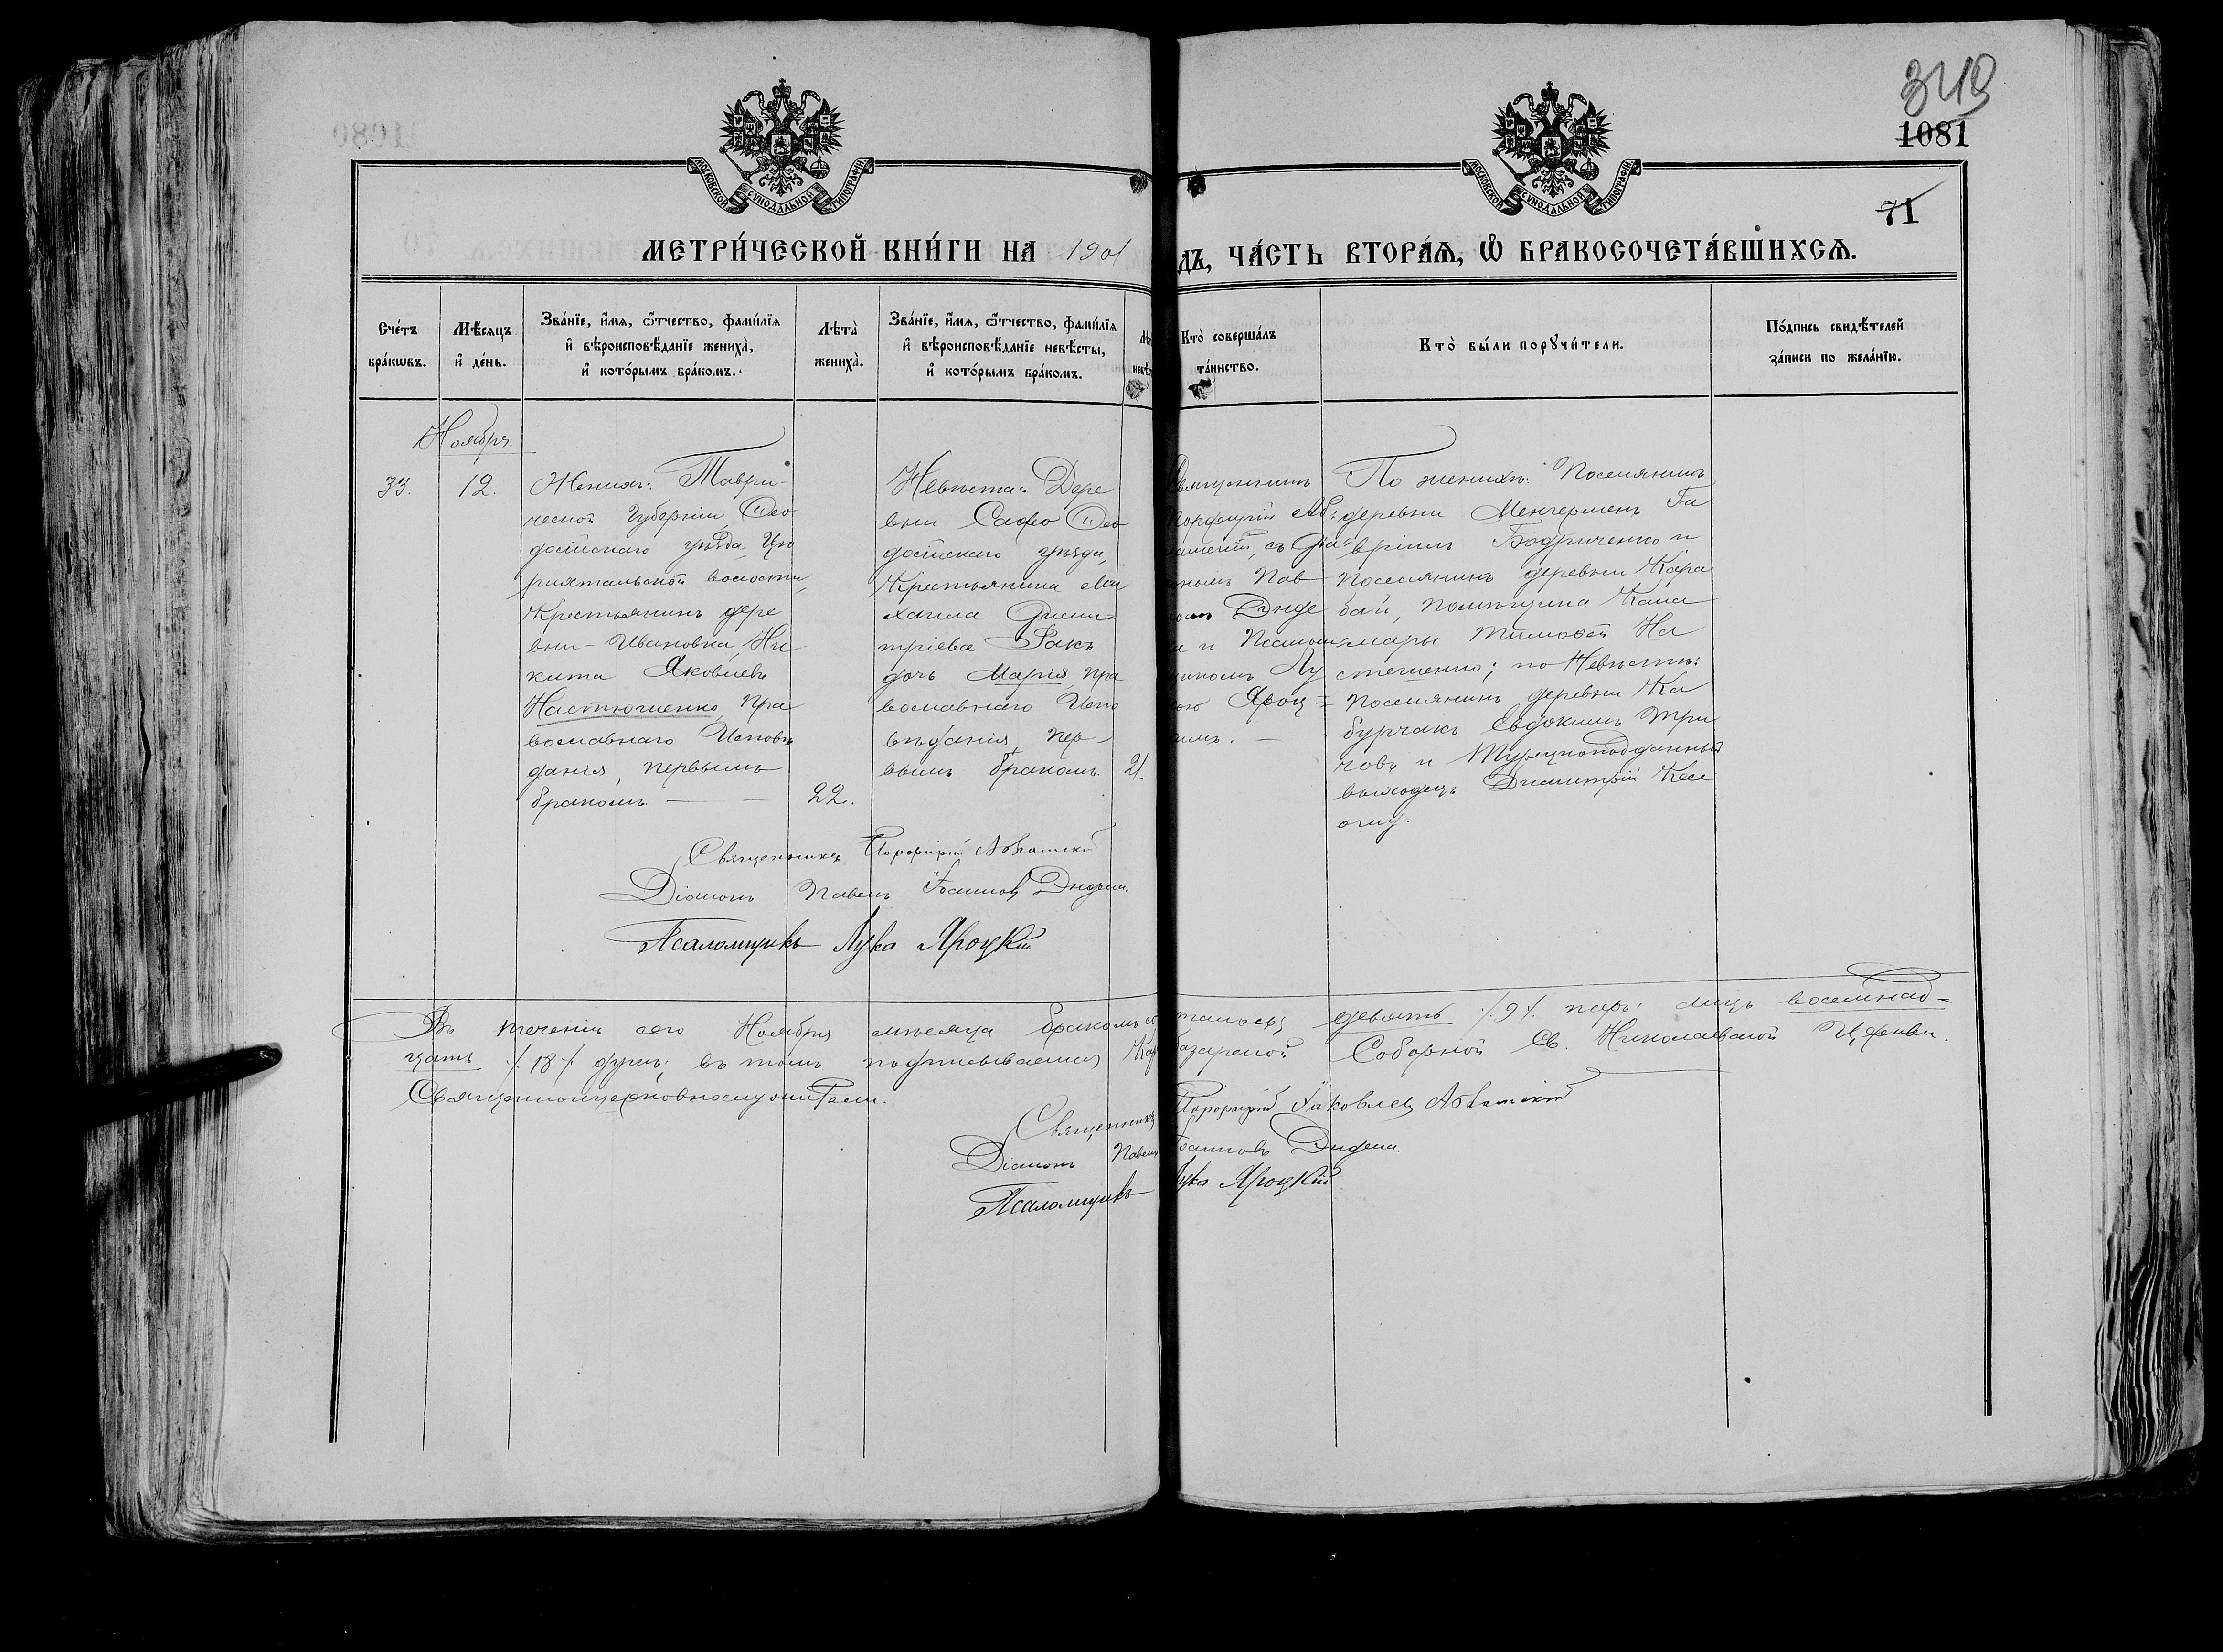 349
1081
71
МОСКОВСКОЙ СѴНОДАЛЬНОЙ ТИПОГРАФІИ
МОСКОВСКОЙ СѴНОДАЛЬНОЙ ТИПОГРАФІИ
МЕТРИ́ЧЕСКОЙ КНИ́ГИ НА 1901
ДЪ, ЧА́СТЬ ВТОРА́Ѧ, Ѡ҆ БРАКОСОЧЕТА́ВШИХСѦ.
Сче́тъ
бра́кѡвъ.
Мѣ́сѧцъ
и҆ де́нь.
Зва́нїе, и҆́мѧ, ѻ҆́тчество, фами́лїѧ
и҆ вѣроисповѣ́данїе жениха̀,
и҆ кото́рымъ бра́комъ.
Лѣта̀
жениха̀.
Зва́нїе, и҆́мѧ, ѻ҆́тчество, фами́лїѧ
и҆ вѣроисповѣ́данїе невѣ́сты,
и҆ кото́рымъ бра́комъ.
Лѣ
невѣ
Кто̀ соверша́лъ
та́инство.
Кто̀ бы́ли порꙋчи́тели.
По́дпись свидѣ́телей
за́писи по жела́нїю.
Ноября.
33.
12.
Женихъ: Таври-
ческой Губерніи Ѳео
досійскаго уѣзда, Цю
рихтальской волости,
Крестьянинъ дере
вни - Ивановка, Ни
кита Яковлевъ
Настюшенко, Пра
вославнаго Исповѣ
данія, первымъ
бракомъ. — —
22.
Невѣста: Дере
вни Ѳео
досійскаго уѣзда,
Крестьянина Ми
хаила Дими-
тріева Ракъ
дочь Марія, пра
вославнаго Испо
вѣданія, пер-
вымъ бракомъ.
21.
Священникъ
Порфирій Аб
рамскій, съ Діа
кономъ Пав
ломъ Дзюбе
и Псалом
щикомъ Лу
кою Яроц=
кимъ. —
По женихѣ: Поселянинъ
деревни Менгерменъ Га
вріилъ Бодриченко и
поселянинъ деревни Кара
бай, Тимоѳей На
стешенко; по Невѣстѣ:
Поселянинъ деревни Ка
бурчакъ Евдокимъ
и Турецкоподданный
Димитрій
оглу.
Священникъ Порфирій
Діаконъ Павелъ Іоанновъ
Псаломщикъ Лука Яроцкій
Въ теченіи сего Ноября мѣсяца бракомъ
девять /9/ паръ: лицъ восемнад=
цать /18/ душъ; въ томъ подписываемся
Соборной Св. Николаевской Церкви.
Священноцерковнослужители.
Священникъ Порфирій Іаковлевъ
Діаконъ Павелъ Іоанновъ
Псаломщикъ Лука Яроцкій